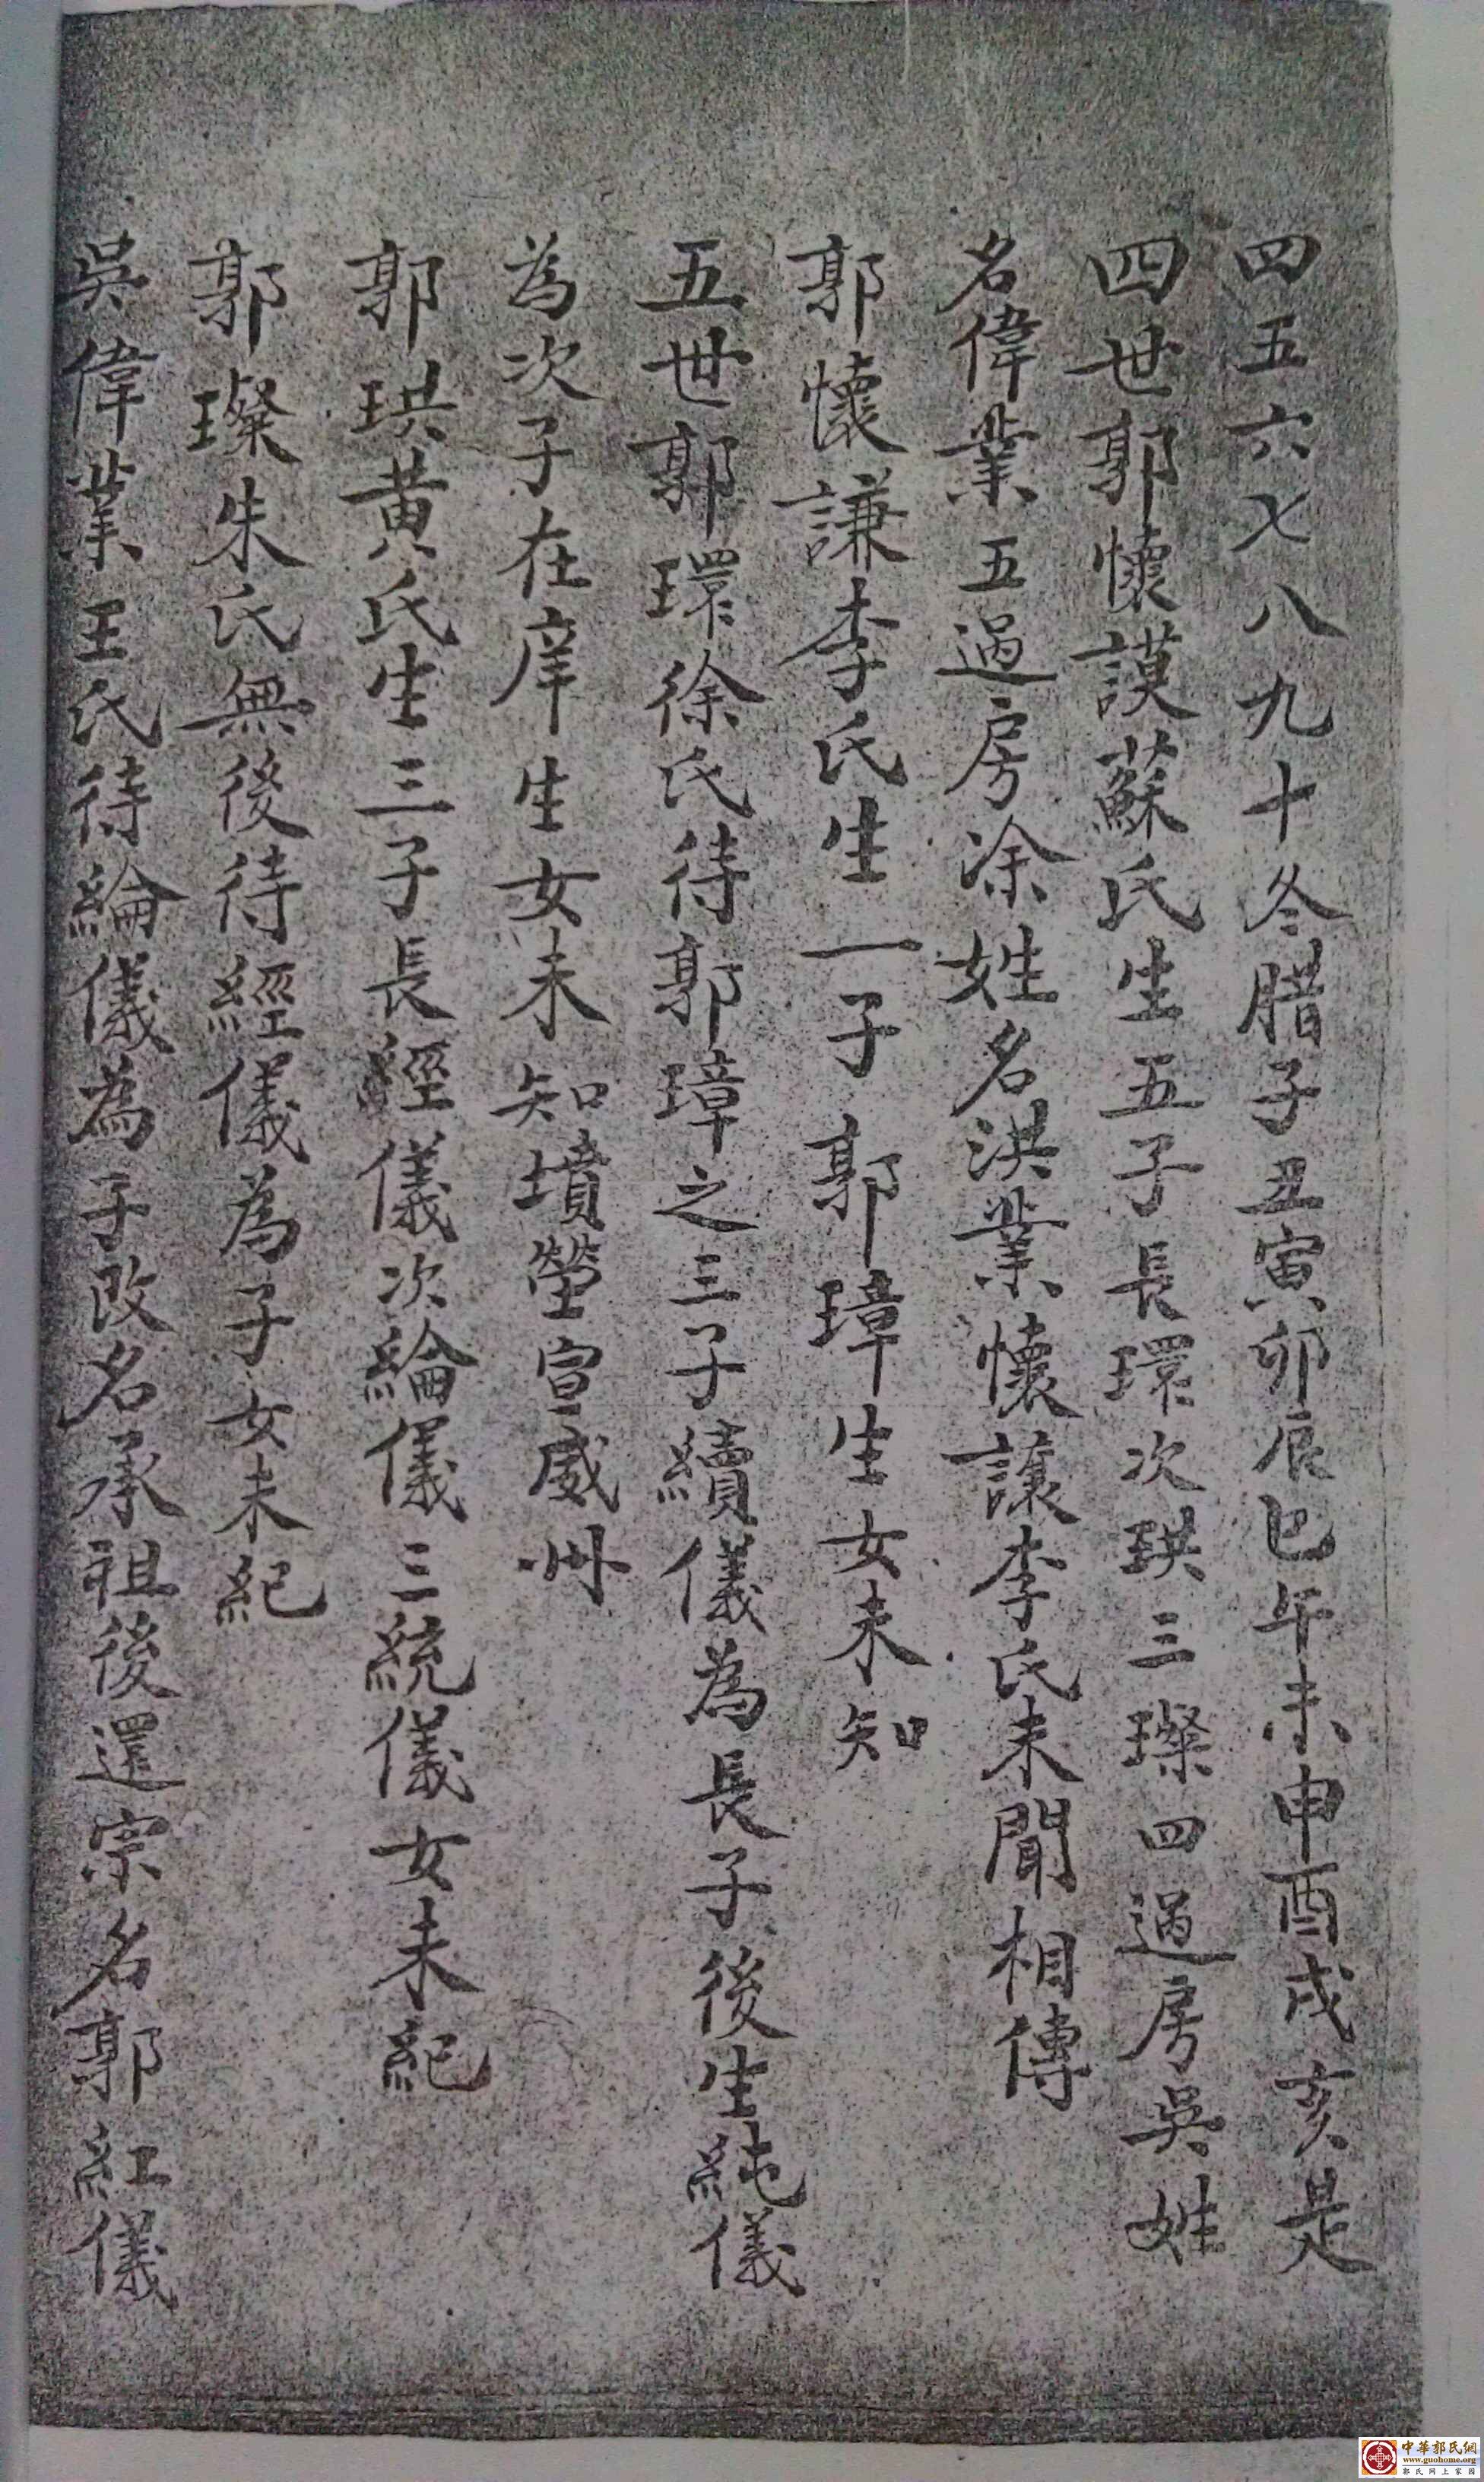 四五六七八九十冬腊子丑寅卯辰巳午未申酉戌亥是
四世郭懷謨蘇氏生五子長環次珙三璨四過房吳姓
名偉業五過房凃姓名洪業懷讓李氏未聞相傳
郭懷謙李氏生一子郭璋生女未知
五世郭環徐氏待郭璋之三子續儀為長子後生純儀
為次子在庠生女未知墳塋宣威州
郭珙黃氏生三子長經儀次綸儀三統儀女未紀
郭璨朱氏無後待經儀為子女未紀
吳偉業王氏待綸儀為子改名承祖後還宗名郭紅儀
中華郭氏網
www.guohome.org
郭氏网上家园